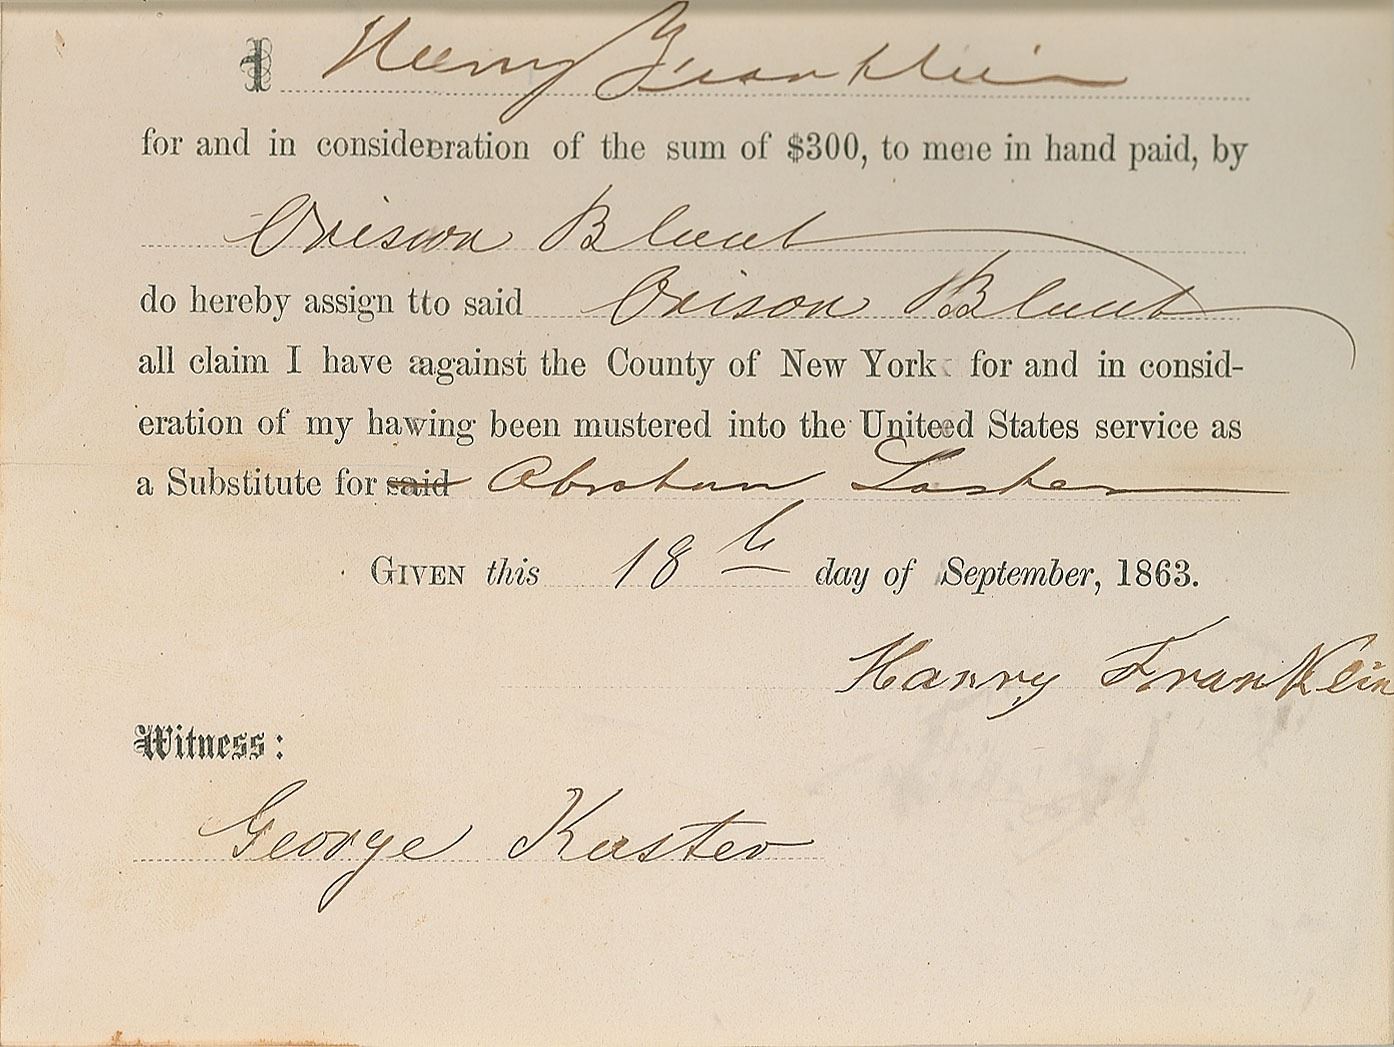 I Henry Franklin
for and in consideration of the sum of $300, to me in hand paid, by
Orison Blunt
do hereby assign to said Orison Blunt
all claim I have against the County of New York for and in consid-
eration of my having been mustered into the United States service as
a Substitute for said Abraham Lasher
GIVEN this 18th day of September, 1863.
Hanry Franklin
Witness:
George Kuster